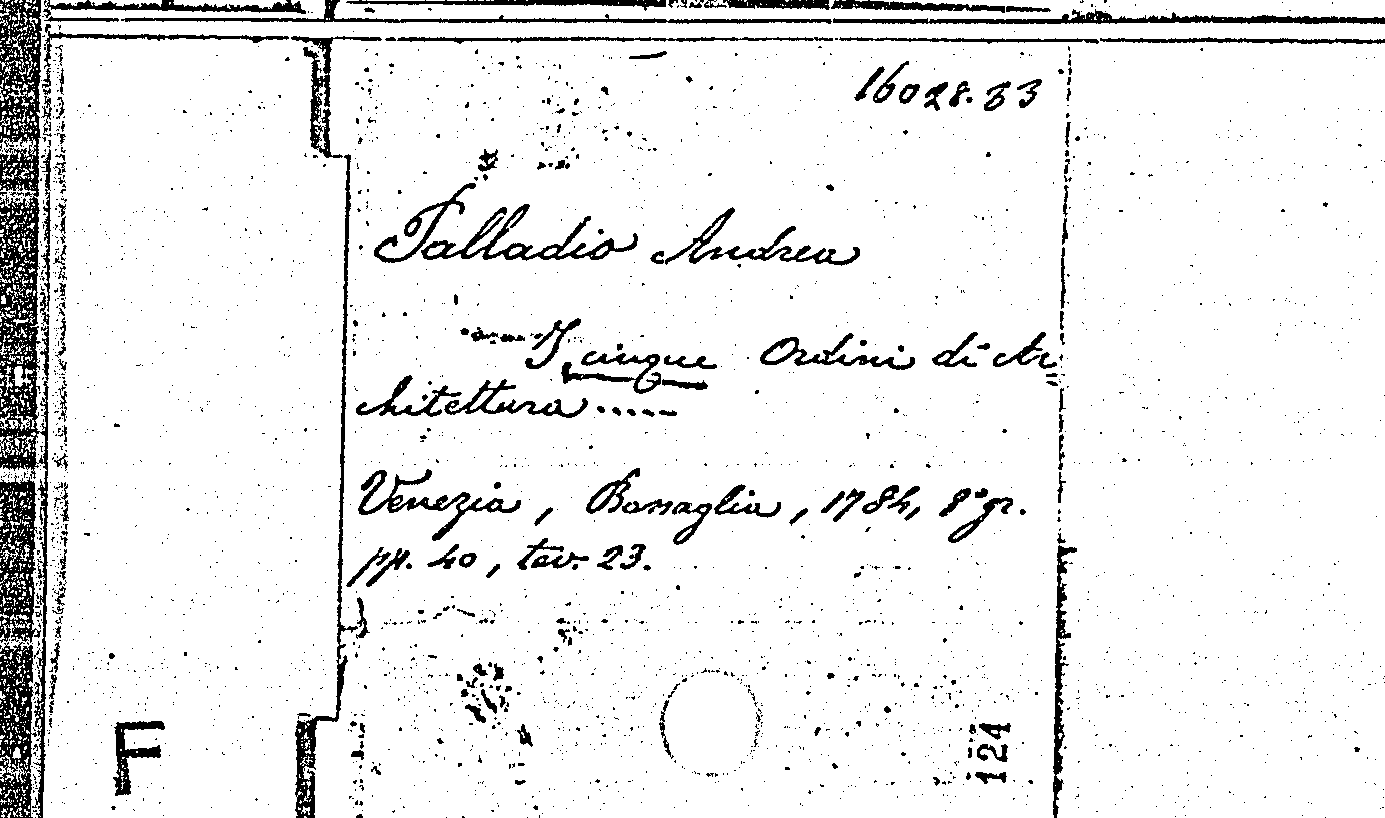 16028.33
Palladio Andrea
I cinque Ordini di Ar
chitettura.....
Venezia, Bassaglia, 1784, 8° gr.
pp. 40, tav. 23.
F
124